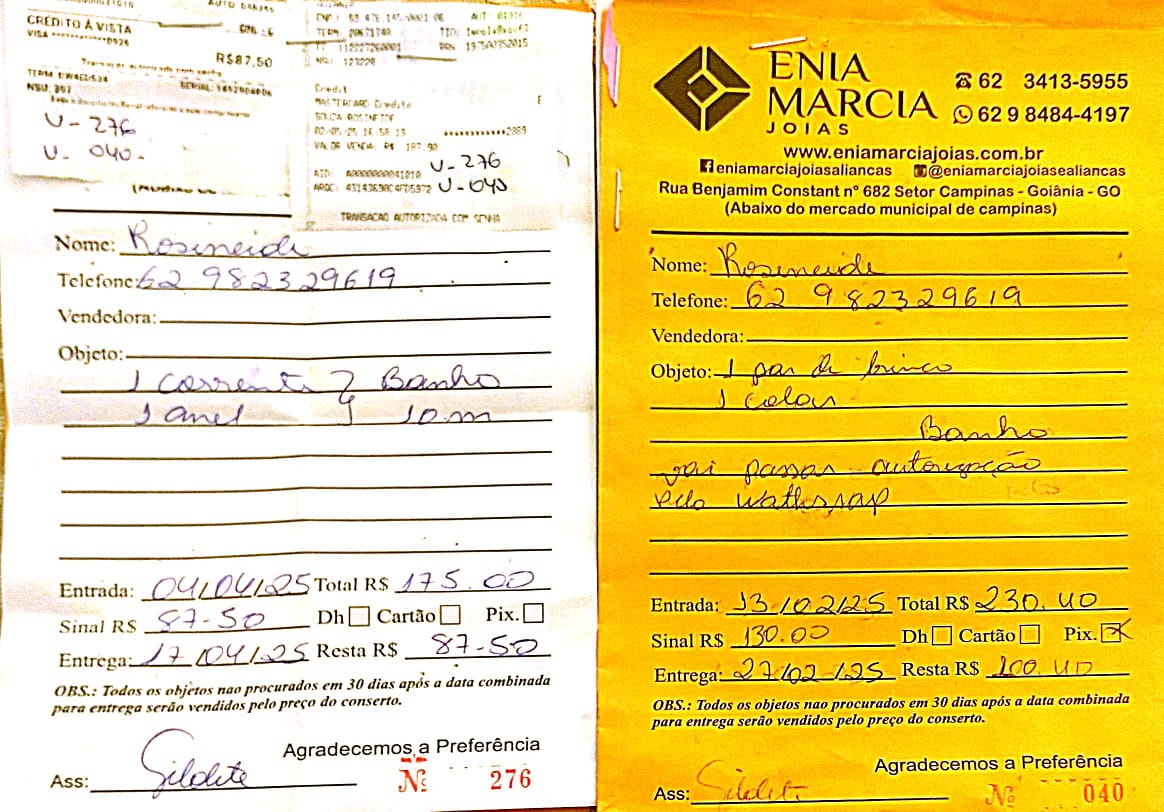 CRÉDITO À VISTA
VISA ************0926
R$87,50
Transacao autorizada com senha
NSU: 397
U- 276
U- 040-
TERM: 20671740
NSU: 123228
Credit
MASTERCARD Credito
02-05-25 16:58:19 ************2889
VALOR VENDA: R$ 187.50
U-276
AID: A0000000041010
U-040
TRANSACAO AUTORIZADA COM SENHA
Nome: Rosineide
Telefone: 62 982329619
Vendedora:
Objeto:
1 corrente } Banho
1 anel } 10m
Entrada: 04/04/25 Total R$ 175.00
Sinal R$ 87-50 Dh Cartão Pix.
Entrega: 17/04/25 Resta R$ 87-50
OBS.: Todos os objetos nao procurados em 30 dias após a data combinada
para entrega serão vendidos pelo preço do conserto.
Agradecemos a Preferência
Ass: Gildete Nº 276
ENIA
MARCIA
JOIAS
62 3413-5955
62 9 8484-4197
www.eniamarciajoias.com.br
eniamarciajoiasaliancas @eniamarciajoiasealiancas
Rua Benjamim Constant nº 682 Setor Campinas - Goiânia - GO
(Abaixo do mercado municipal de campinas)
Nome: Rosineide
Telefone: 62 982329619
Vendedora:
Objeto: 1 par de brinco
1 colar
Banho
vai passar autorização
pelo Wathssap
Entrada: 13/02/25 Total R$ 230.00
Sinal R$ 130.00 Dh Cartão Pix. X
Entrega: 27/02/25 Resta R$ 100.00
OBS.: Todos os objetos nao procurados em 30 dias após a data combinada
para entrega serão vendidos pelo preço do conserto.
Agradecemos a Preferência
Ass: Gildete Nº 040